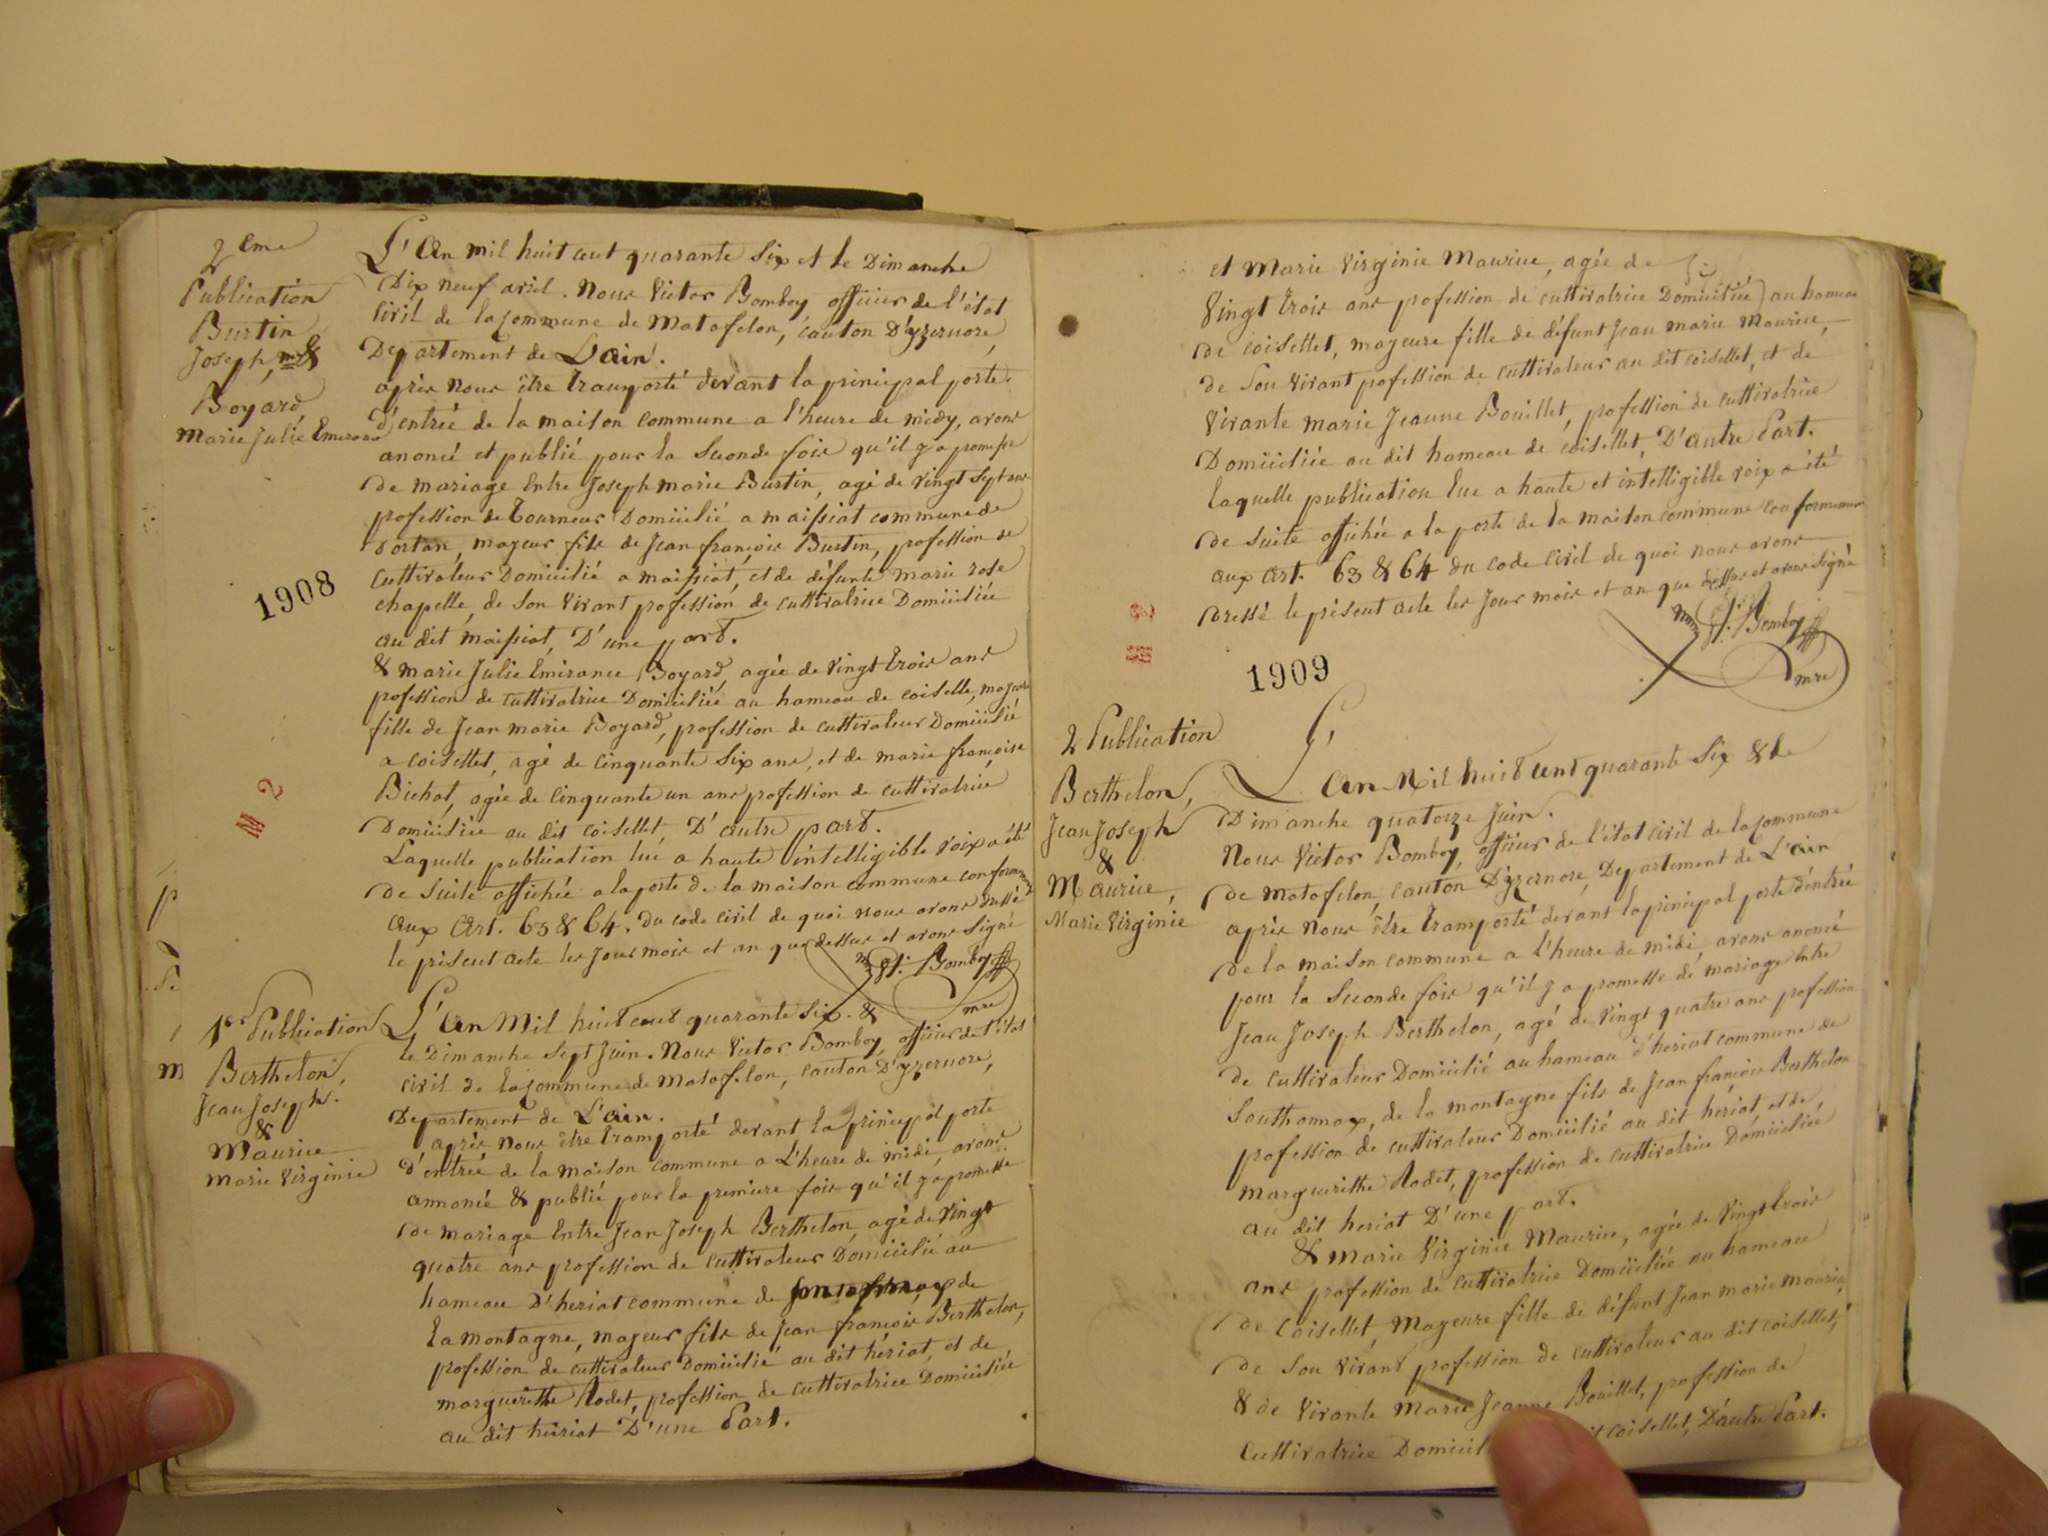 2ème
Publication
Burtin
Joseph, m. &
Boyard
Marie Julie Emerance
L'An mil huit cent quarante Six et le Dimanche
Dix neuf avril. Nous Victor Bomboy officier de l'état
Civil de la Commune de Matafelon, Canton D'yzernore,
Département de L'ain.
après nous être transporté devant la principal porte
d'entrée de la maison commune a l'heure de midy, avons
anoncé et publié pour la Seconde fois qu'il y a promesse
de mariage Entre Joseph marie Burtin, agé de vingt Sept ans
profession de Tourneur Domicilié a maissiat commune de
dortan, majeur fils de Jean françois Burtin, profession de
Cultivateur Domicilié a maissiat, et de défunte marie rose
chapelle, de Son vivant profession de cultivatrice Domiciliée
au dit maissiat, D'une part.
& marie Julie Emirance Boyard, agée de vingt trois ans
profession de cultivatrice Domiciliée au hameau de coiselle, majeure
fille de Jean marie Boyard, profession de cultivateur Domicilié
a coisellet, agé de Cinquante Six ans, et de marie françoise
Bichat, agée de Cinquante un ans profession de cultivatrice
Domiciliée au dit coisellet, D'autre part.
Laquelle publication lue a haute intelligible voix a été
de Suite affichée a la porte de la maison commune conformement
aux Art. 63 & 64. du code civil de quoi nous avons dressé
le présent acte les Jour mois et an que dessus et avons Signé
Bomboy
mre
1908
M 2
1ère Publication
Berthelon,
Jean Joseph.
&
Maurice
Marie Virginie
L'An Mil huit cent quarante Six. &
le Dimanche Sept Juin. Nous Victor Bomboy, officier de l'état
civil de la Commune de Matafelon, Canton D'yzernore,
Département de L'ain.
après nous être transporté devant la principal porte
d'entrée de la maison commune a L'heure de midi, avons
annoncé & publié pour la premiere fois qu'il y a promesse
de mariage Entre Jean Joseph Berthelon, agé de vingt
quatre ans profession de cultivateur Domicilié au
hameau D'heriat commune de de
la montagne, majeur fils de Jean françois Berthelon,
profession de cultivateur Domicilié au dit hériat, et de
marguerithe Rodet, profession de cultivatrice Domiciliée
au dit hériat D'une Part.
et Marie Virginie Maurice, agée de
Vingt trois ans profession de cultivatrice Domiciliée au hameau
de coisellet, majeure fille de défunt Jean marie Maurice,
de Son vivant profession de cultivateur au dit coisellet, et de
vivante marie Jeanne Bouillet, profession de cultivatrice
Domiciliée au dit hameau de coisellet, D'autre Part.
Laquelle publication lue a haute et intelligible voix a été
de Suite affichée a la porte de la maison commune conformement
aux Art. 63 & 64 du code Civil de quoi nous avons
dressé le présent acte les Jour mois et an que dessus et avons Signé
Bomboy
mre
1909
2 Publication
Berthelon,
Jean Joseph
&
Maurice,
Marie Virginie
L'An Mil huit cent quarante Six & le
Dimanche quatorze Juin.
Nous Victor Bomboy, officier de l'état civil de la Commune
de Matafelon, Canton D'yzernore, Département de L'ain
après nous être transporté devant la principal porte d'entrée
de la maison commune a l'heure de midi, avons anoncé
pour la Seconde fois qu'il y a promesse de mariage Entre
Jean Joseph Berthelon, agé de vingt quatre ans profession
de cultivateur Domicilié au hameau d'heriat commune de
Southonnax, de la montagne fils de Jean françois Berthelon
profession de cultivateur Domicilié au dit hériat, et de,
Marguerithe Rodet, profession de cultivatrice Domiciliée
au dit heriat D'une part.
& Marie Virginie Maurice, agée de vingt trois
ans profession de cultivatrice Domiciliée au hameau
de Coisellet, Majeure fille de défunt Jean marie maurice,
de Son vivant profession de cultivateur au dit coisellet,
& de vivante Marie Jeanne Bouillet, profession de
Cultivatrice coisellet, D'autre Part.